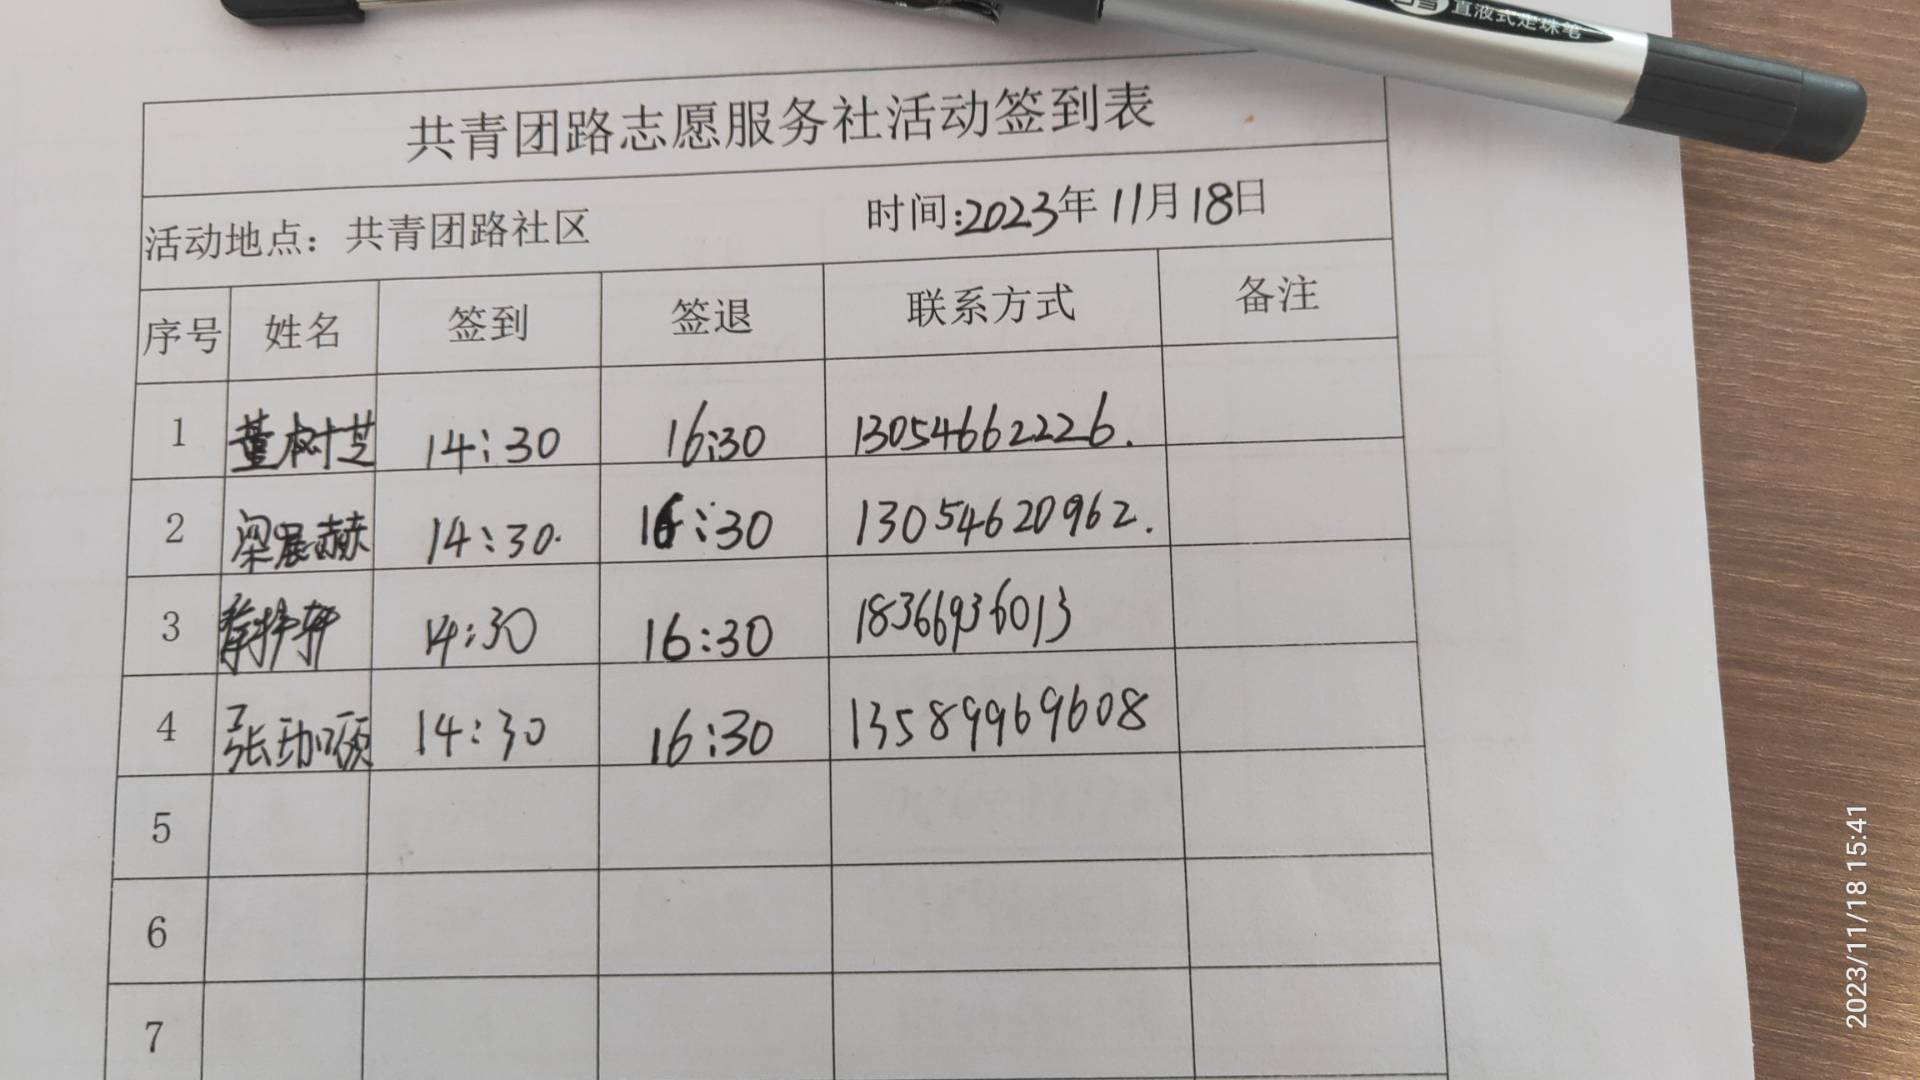 直液式走珠笔
共青团路志愿服务社活动签到表
活动地点：共青团路社区 时间:2023年11月18日
序号 姓名 签到 签退 联系方式 备注
1 董树芝 14:30 16:30 13054662226.
2 梁晨赫 14:30. 16:30 13054620962.
3 14:30 16:30 18366936013
4 张 14:30 16:30 13589969608
5
6
7
2023/11/18 15:41